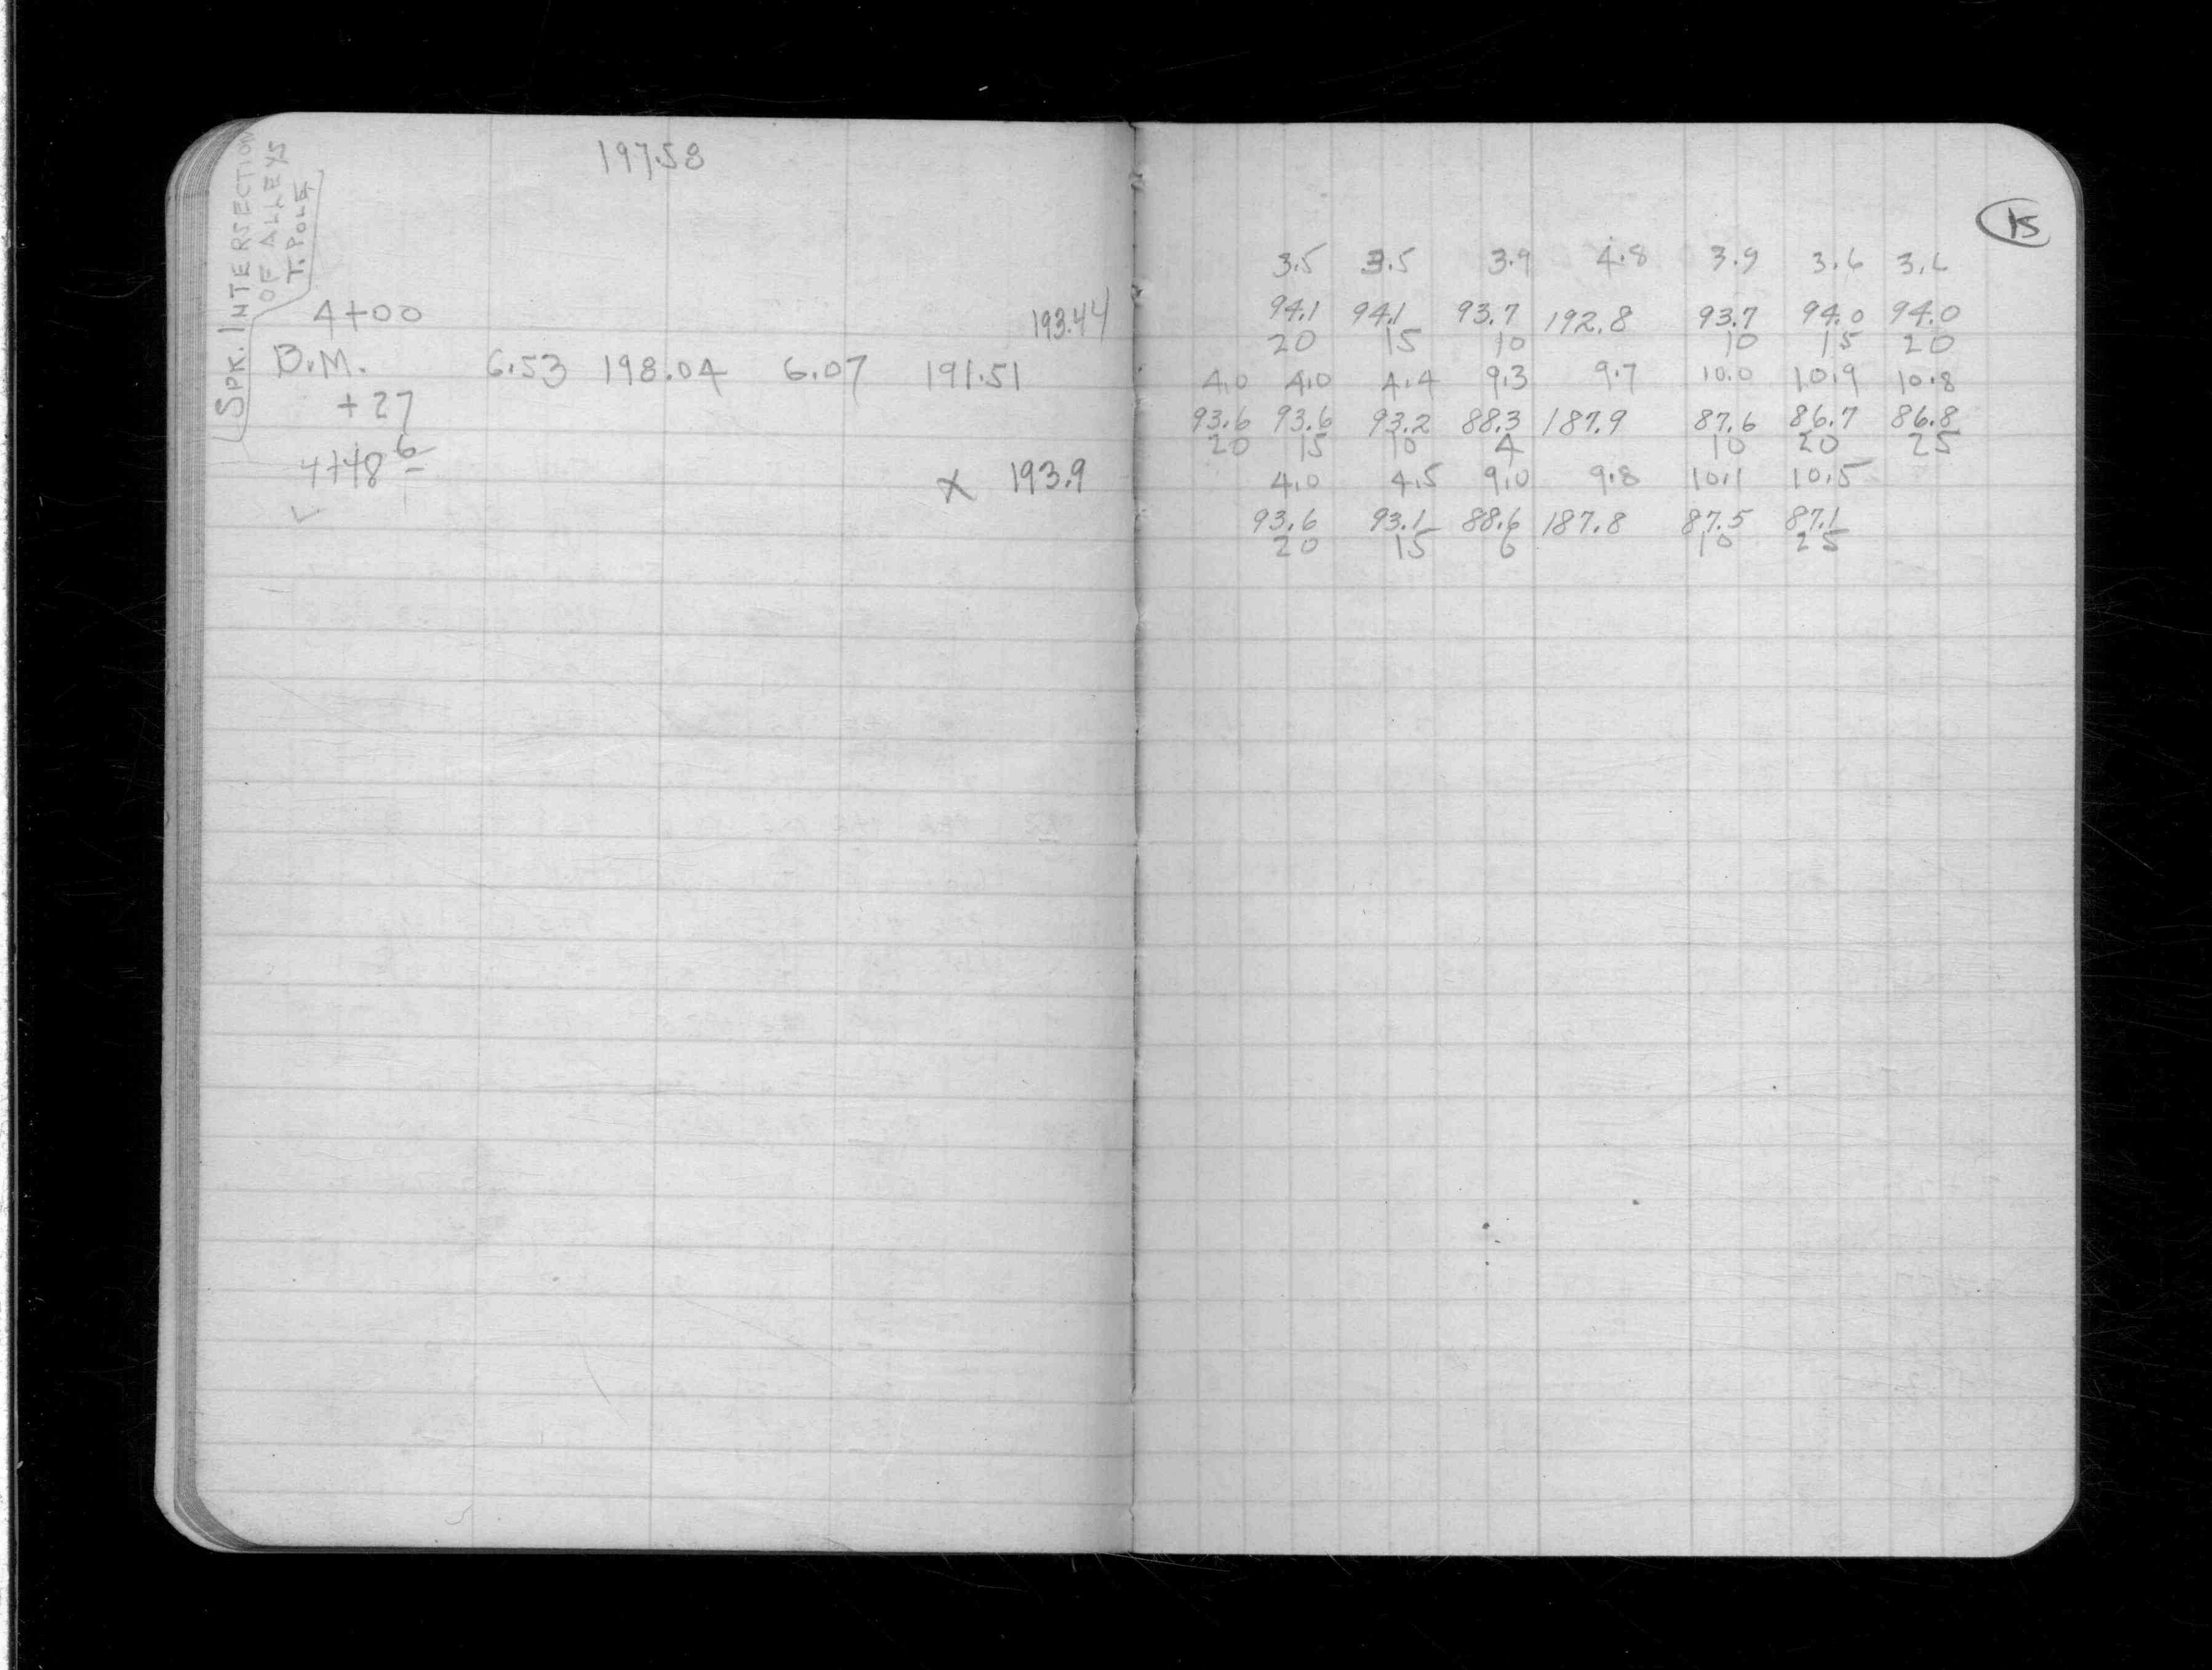 197.58
SPK. INTERSECTION
OF ALLEYS
T. POLE
4+00 193.44
B.M. 6.53 198.04 6.07 191.51
+27
4+48 6
x 193.9
15
3.5 3.5 3.9 4.8 3.9 3.6 3.6
94.1 94.1 93.7 192.8 93.7 94.0 94.0
20 15 10 10 15 20
4.0 4.0 4.4 9.3 9.7 10.0 10.9 10.8
93.6 93.6 93.2 88.3 187.9 87.6 86.7 86.8
20 15 10 4 10 20 25
4.0 4.5 9.0 9.8 10.1 10.5
93.6 93.1 88.6 187.8 87.5 87.1
20 15 6 10 25